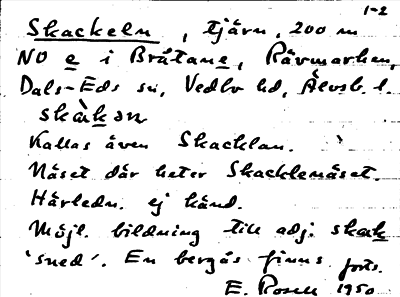 1-2
Skackeln, tjärn, 200 m
NO e i Bråtane, Rävmarken,
Dals-Eds sn, Vedbo hd, Älvsb. l.
skàkən
Kallas även Skacklan.
Näset där heter Skacklenäset.
Härledn. ej känd.
Möjl. bildning till adj. skak
'sned'. En bergås finns forts.
E. Rosell 1950